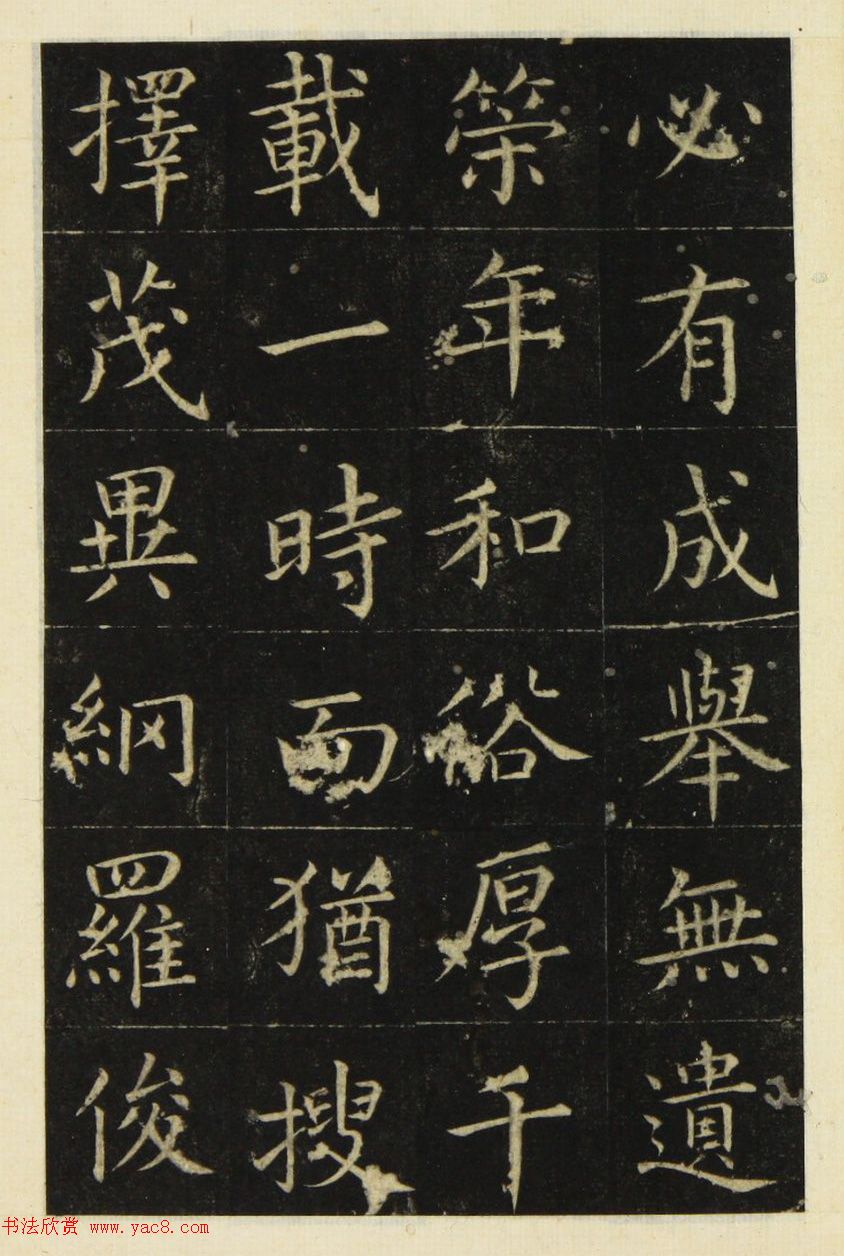 必有成舉無遺
筞年和俗厚千
載一時而猶搜
擇茂異網羅俊
书法欣赏 www.yac8.com